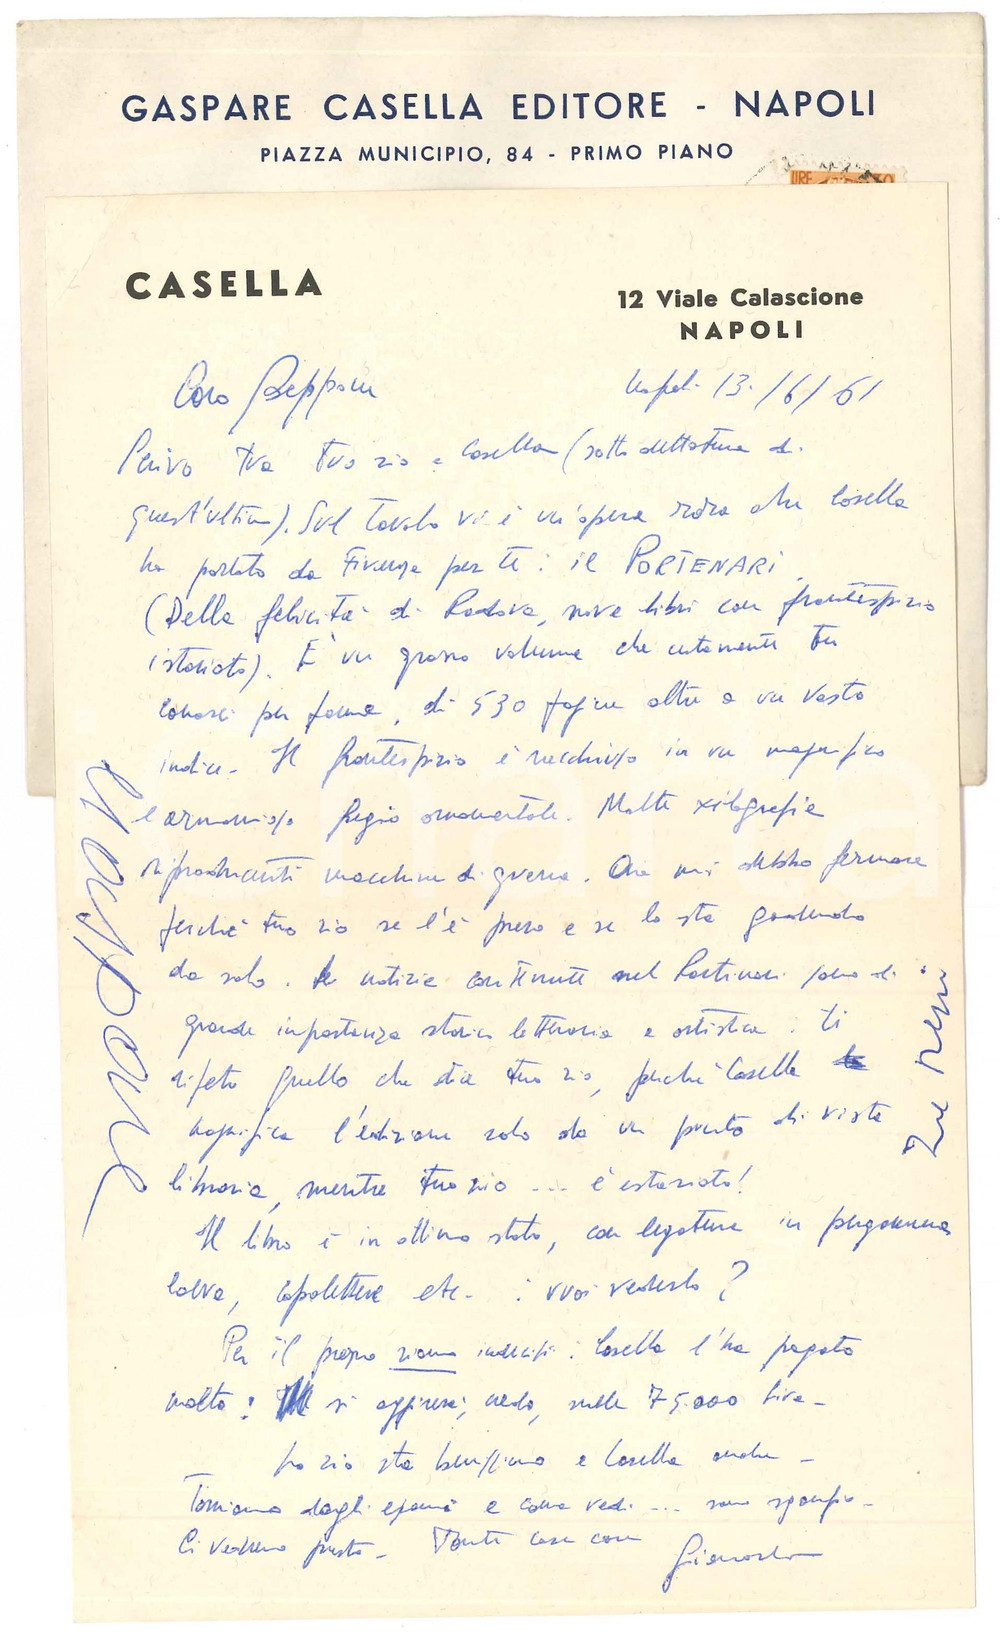 GASPARE CASELLA EDITORE - NAPOLI
PIAZZA MUNICIPIO, 84 - PRIMO PIANO
LIRE
CASELLA
12 Viale Calascione
NAPOLI
Napoli 13/6/61
Caro Beppone
tra tuo zio e Casella (sotto dettatura di
quest'ultimo). Sul tavolo vi è un'opera rara che Casella
ha portato da Firenze per te: il PORTENARI
(Della felicità di Padova, nove libri con frontespizio
istoriato). È un grosso volume che certamente tu
conosci per fama, di 530 pagine oltre a un vasto
indice. Il frontespizio è racchiuso in un magnifico
e armonioso fregio ornamentale. Molte xilografie
riproducenti macchine di guerra. Ora mi debbo fermare
perché tuo zio se l'è preso e se lo sta godendo
da solo. Le notizie contenute nel Portinari sono di
grande importanza storica letteraria e artistica: ti
ripeto quello che dice tuo zio, perché Casella
magnifica l'edizione solo da un punto di vista
libraria, mentre tuo zio ... è estasiato!
Il libro è in ottimo stato, con legatura in pergamena
coeva, capolettere etc. : vuoi vederlo?
Per il prezzo siamo indecisi: Casella l'ha pagato
molto: si aggirerà, credo, sulle 75.000 lire.
Lo zio sta benissimo e Casella anche.
Torniamo dagli esami e come vedi ...
Ci vedremo presto. Tante cose care
Gaspare